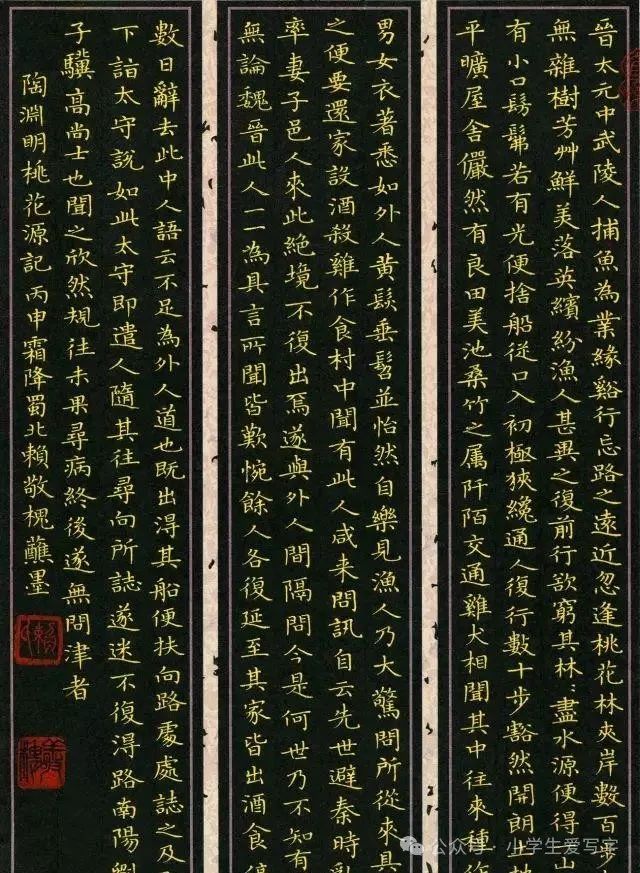 晉太元中武陵人捕魚為業緣谿行忘路之遠近忽逢桃花林夾岸數百步
無雜樹芳艸鮮美落英繽紛漁人甚異之復前行欲窮其林〻盡水源便得
有小口髣髴若有光便捨船從口入初極狹纔通人復行數十步豁然開朗土
平曠屋舍儼然有良田美池桑竹之属阡陌交通雞犬相聞其中往来種作
男女衣著悉如外人黄髮垂髫並怡然自樂見漁人乃大驚問所從來具
之便要還家設酒殺雞作食村中聞有此人咸来問訊自云先世避秦時亂
率妻子邑人來此絕境不復出焉遂與外人間隔問今是何世乃不知有
無論魏晉此人一一為具言所聞皆歎惋餘人各復延至其家皆出酒食停
數日辭去此中人語云不足為外人道也既出得其船便扶向路處處誌之及
下詣太守說如此太守即遣人隨其往尋向所誌遂迷不復得路南陽劉
子驥高尚士也聞之欣然規往未果尋病終後遂無問津者
陶淵明桃花源記丙申霜降蜀北賴敬槐蘸墨
公众号 · 小学生爱写字